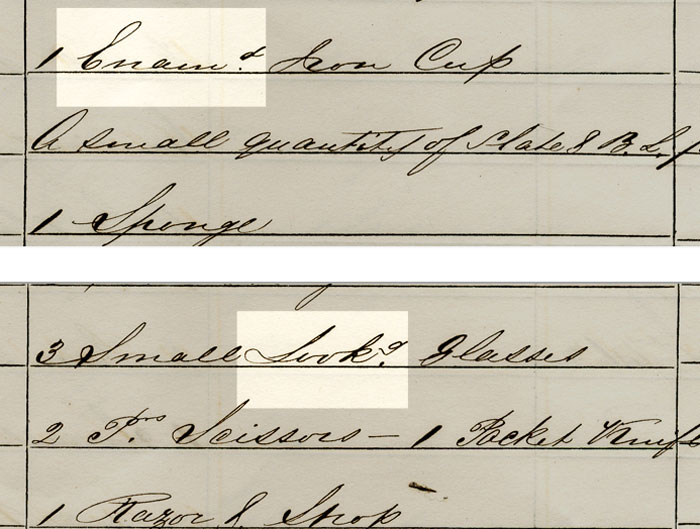 1 Enam^d Iron Cup
A small quantity of Slate & B. L.
1 Sponge
3 Small Look^g. Glasses
2 P^rs Scissors — 1 Pocket Knife
1 Razor & Strop